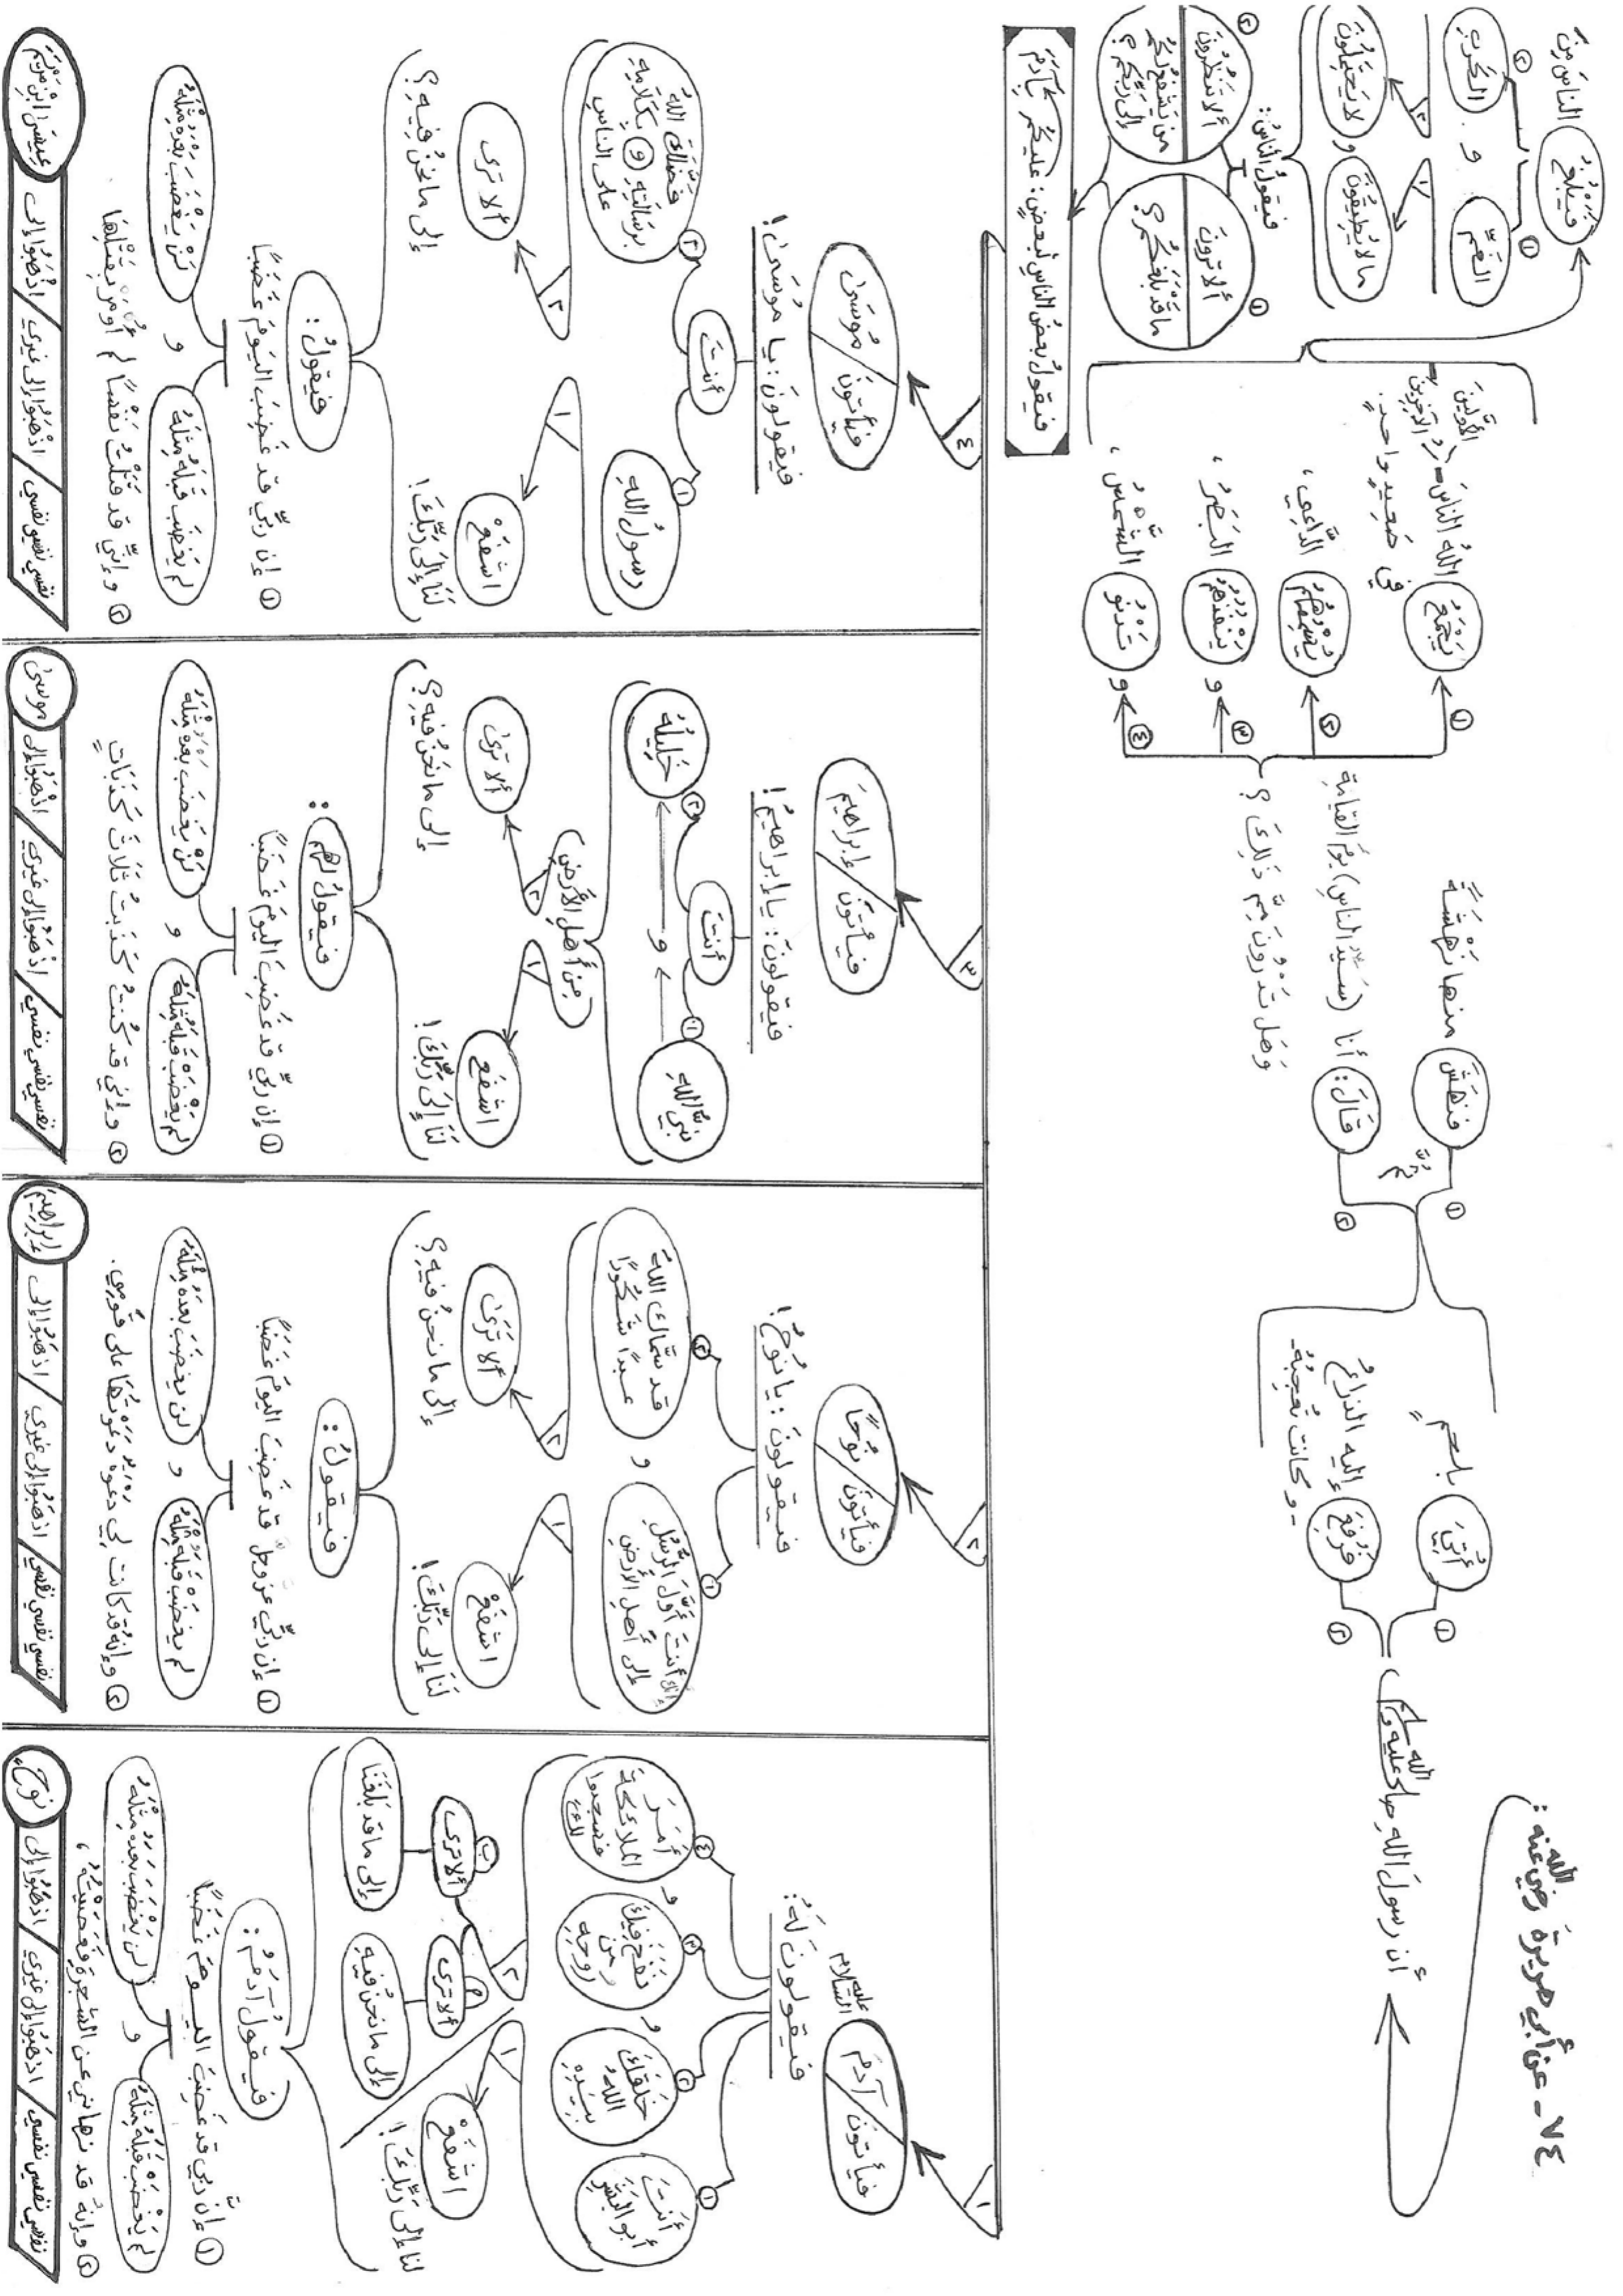 ٧٤ - عن أبي هريرةَ رضي الله عنه :
أن رسولَ الله صلى الله عليه وسلم
① أُتِيَ بلحمٍ
② فَرُفِعَ إليه الذراعُ
- وكانت تُعجِبُهُ -
① فَنَهَشَ منها نَهْشَةً
ثُمَّ
② قَالَ : أنا (سَيِّدُ الناسِ) يومَ القيامةِ
وَهَل تَدْرُونَ مِمَّ ذَلِكَ ؟
① يَجْمَعُ اللهُ الناسَ - الأَوَّلينَ و الآخِرِينَ -
في صَعِيدٍ واحدٍ .
② يُسْمِعُهُمُ الدَّاعِي ،
③ و يَنْفُذُهُمُ البَصَرُ ،
④ و تَدْنُو الشَّمْسُ ،
فَيَبْلُغُ الناسَ مِنَ
① الغَمِّ و ② الكَرْبِ
١ مالا يُطِيقُونَ و ٢ لا يَحْتَمِلُونَ
فيقولُ الناسُ :
① ألا ترونَ ما قَدْ بَلَغَكُمْ ؟
② ألا تَنْظُرُونَ من يَشْفَعُ لكُمْ إلى رَبِّكُم ؟
فيقولُ بعضُ الناسِ لبعضٍ : عليكُم بآدَمَ
١
فيأتونَ / آدمَ عليه السلام
فيقولونَ لَهُ :
① أَنْتَ أبو البَشَرِ
② خَلَقَكَ اللهُ بِيَدِهِ
و
③ نَفَخَ فِيكَ من رُوحِهِ
و
④ أَمَرَ الملائكةَ فسجدوا لك
١ اشفَعْ لنا إلى رَبِّكَ !
٢ ألا ترى إلى ما نحنُ فيهِ
ب ألا ترى إلى ما قد بَلَغَنَا
فيقولُ آدَمُ :
① إنَّ ربي قد غَضِبَ اليومَ غَضَبًا
لم يَغْضَبْ قَبْلَهُ مِثْلَهُ و لن يَغْضَبَ بَعْدَهُ مِثْلَهُ
② وإنهُ قد نهاني عن الشَّجَرةِ فَعَصَيْتُهُ ،
نفسي نفسي / اذهَبُوا إلى غيري / اذهَبُوا إلى نوحٍ
٢
فيأتونَ / نُوحًا
فيقولونَ : يا نُوحُ !
① إنك أنتَ أوَّلُ الرُّسُلِ إلى أهلِ الأرضِ
و
② قد سَمَّاكَ اللهُ عبدًا شَكُورًا
١ اشفَعْ لَنَا إلى رَبِّكَ !
٢ ألا تَرَىٰ إلى ما نحنُ فيهِ ؟
فيقولُ :
① إن ربِّي عز وجل قد غَضِبَ اليومَ غَضَبًا
لم يغضَبْ قبلَهُ مِثْلَهُ و لن يغضَبَ بعدَهُ مِثْلَهُ
② وإنهُ قد كانت لي دعوةٌ دعوتُها على قَومِي .
نفسي نفسي نفسي / اذهَبُوا إلى غيري / اذهَبُوا إلى إبراهيمَ
٣
فيأتونَ / إبراهيمَ
فيقولونَ : يا إبراهيمُ !
أنتَ
① نَبِيُّ اللهِ و ② خَلِيلُهُ
(مِنْ أَهلِ الأَرضِ)
١ اشفَع لَنَا إلَى رَبِّكَ !
٢ ألا ترىٰ إلى ما نَحْنُ فيهِ ؟
فيقولُ لهم :
① إن ربي قد غَضِبَ اليومَ غَضَبًا
لم يَغْضَبْ قبلَهُ مِثْلَهُ و لَنْ يَغْضَبَ بعدَهُ مِثْلَهُ
② وإني قد كُنتُ كَذَبتُ ثَلاثَ كَذَبَاتٍ
نفسي نفسي نفسي / اذْهَبُوا إلى غيري / اذْهَبُوا إلى موسىٰ
٤
فيأتونَ / مُوسَىٰ
فيقولونَ : يا مُوسَىٰ !
أنتَ
① رسولُ اللهِ
② فَضَّلَكَ اللهُ بِرسالَتِهِ و بِكَلامِهِ على الناسِ
١ اشفَعْ لَنَا إلى رَبِّكَ !
٢ ألا ترى إلى ما نَحْنُ فِيهِ ؟
فيقولُ :
① إن ربِّي قد غَضِبَ اليَومَ غَضَبًا
لم يَغضَب قَبلَهُ مِثلَهُ و لَنْ يَغْضَبَ بَعْدَهُ مِثْلَهُ
② وإنِّي قد قَتَلْتُ نَفْسًا لم أُومَر بِقَتْلِهَا .
نفسي نفسي نفسي / اذْهَبُوا إلى غيري / اذْهَبُوا إلى عِيسَى ابْنِ مَرْيَمَ